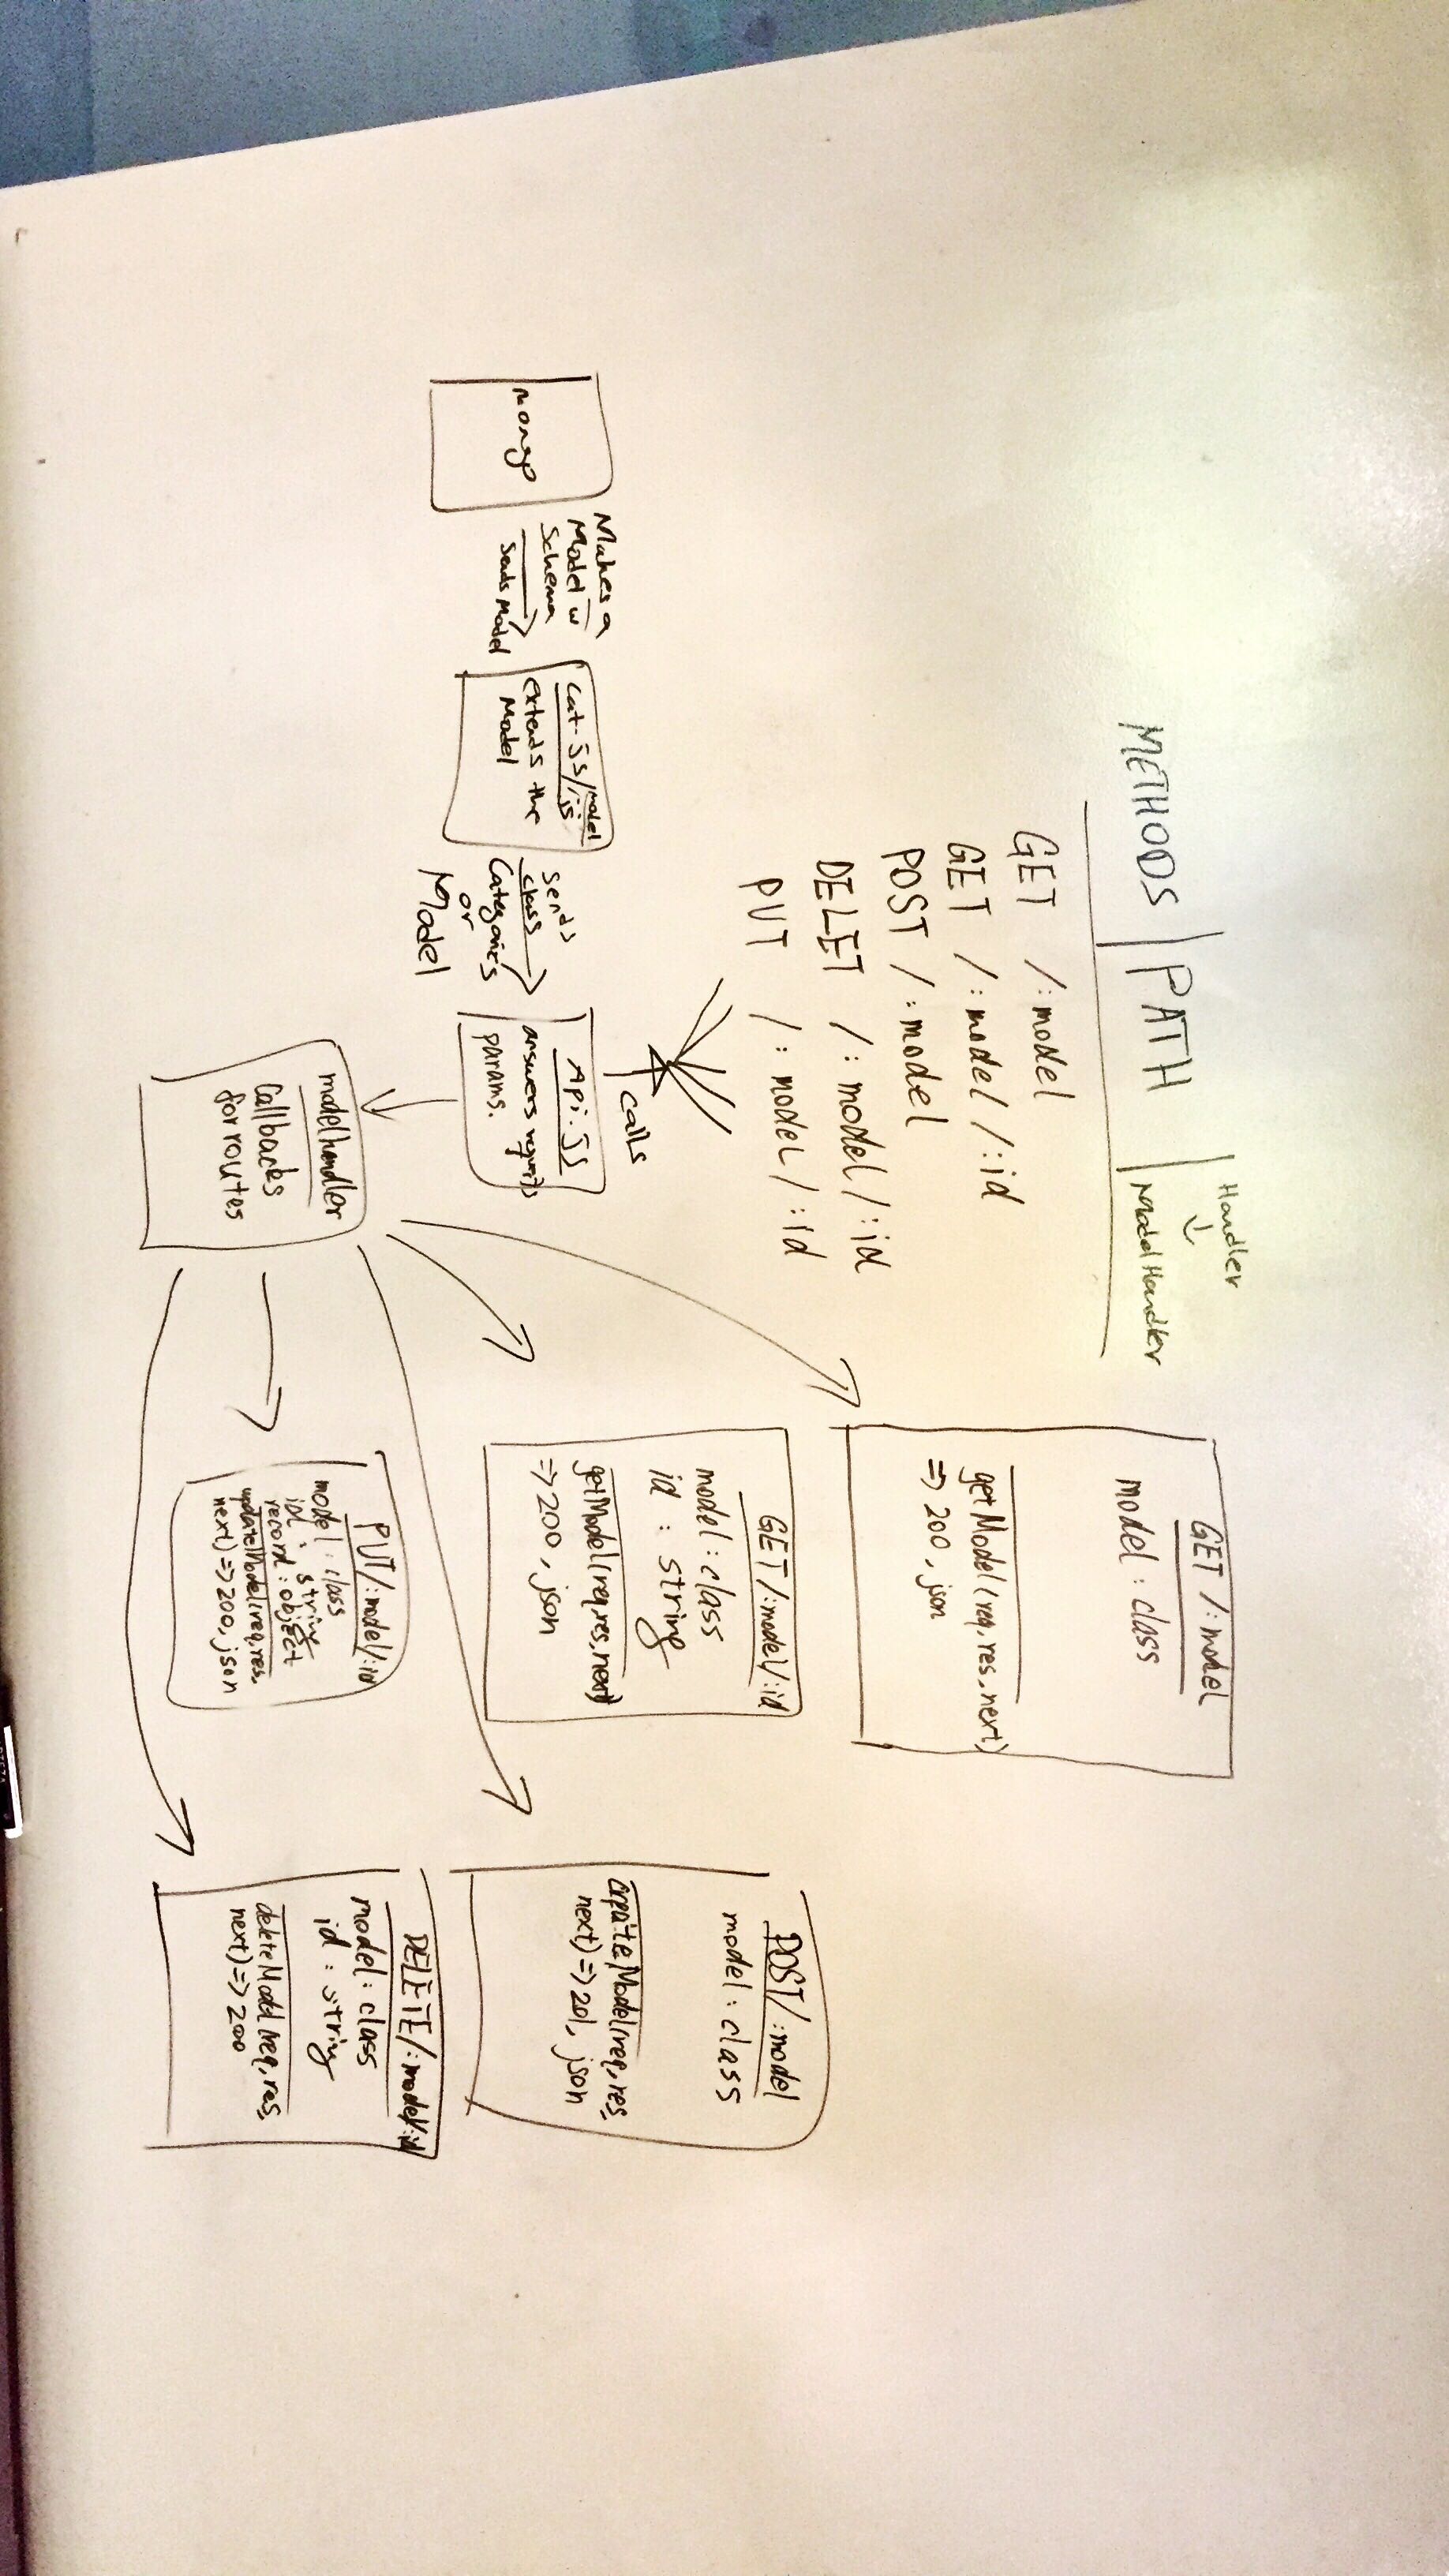 METHODS | PATH | Handler
↓
ModelHandler
GET /:model
GET /:model/:id
POST /:model
DELET /:model/:id
PUT /:model/:id
calls
mongo
Makes a
Model w
Schema
Sends Model
Cat.js/model
.js
extends the
Model
sends
class
Categories
or
Model
Api.js
answers requests
params.
modelhandler
Callbacks
for routes
GET /:model
model : class
getModel(req, res, next)
=> 200, json
GET /:model/:id
model : class
id : string
getModel(req, res, next)
=> 200, json
POST/:model
model : class
createModel(req, res,
next) => 201, json
PUT/:model/:id
model : class
id : string
record : object
updateModel(req, res,
next) => 200, json
DELETE/:model/:id
model : class
id : string
deleteModel(req, res,
next) => 200